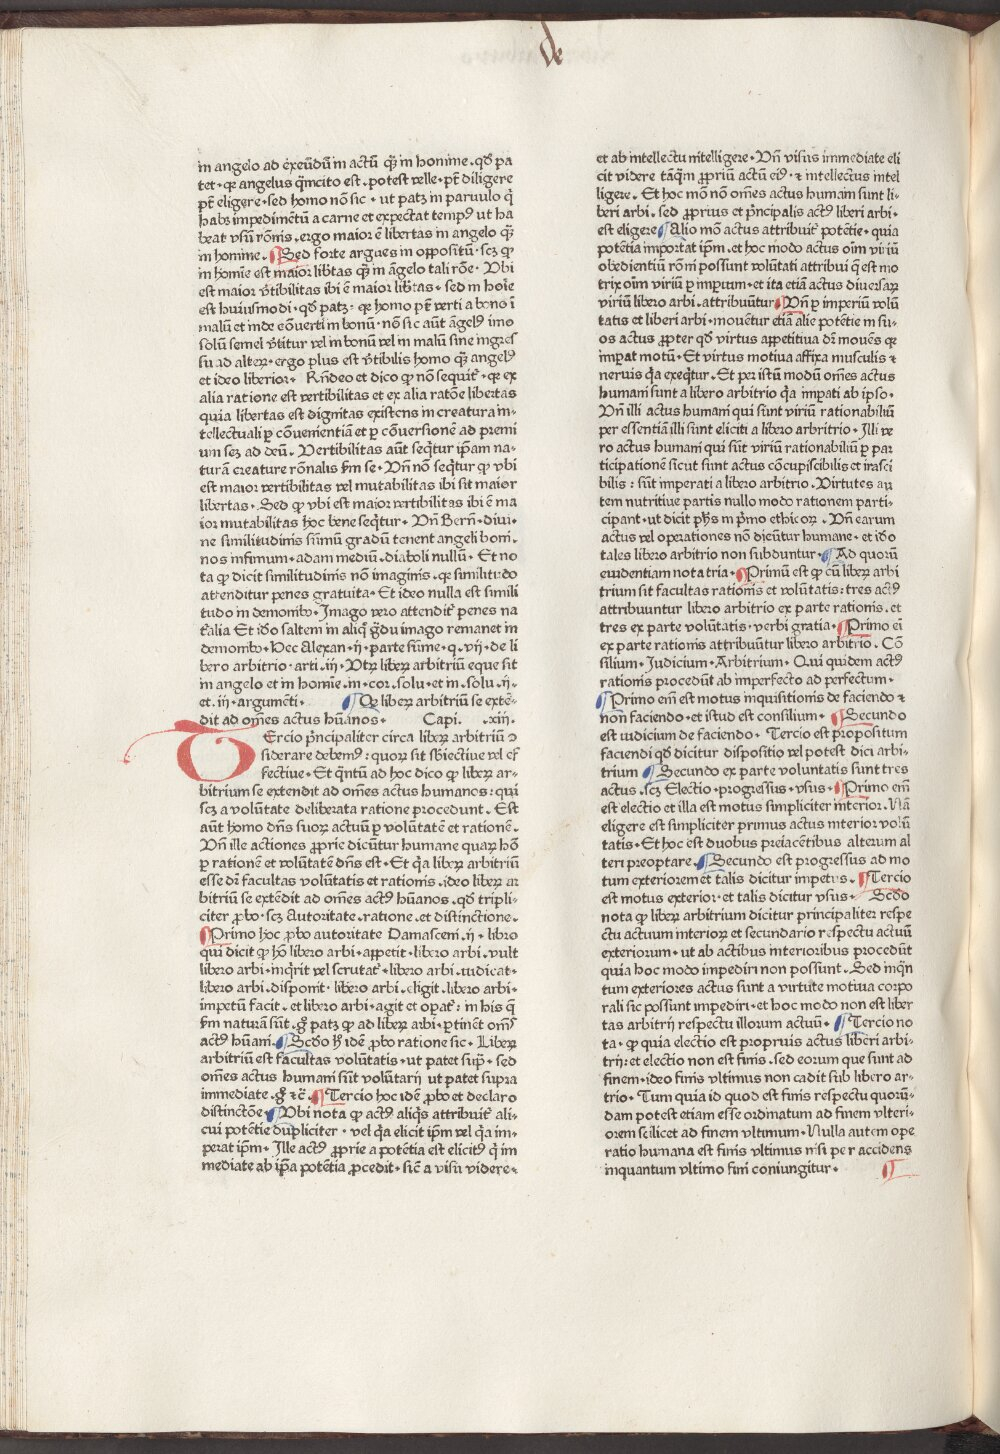 de
in angelo ad exeūdū in actū qȝ̄ in homine. qđ pa
tet. qꝛ angelus qͫcito est. potest velle. pt̄ diligere
pt̄ eligere. sed homo nō sic. ut patꝫ in paruulo q̇
habꝫ impedimētū a carne et expectat tempꝰ ut ha
beat vsū rōnis. ergo maior ē libertas in angelo qȝ̄
in homine. Sed forte argues in oppositū. scꝫ qꝫ
in homīe est maior libtas qȝ̄ in āgelo tali rōe. Vbi
est maior v̄tibilitas ibi ē maior lib̄tas. sed in hoīe
est huiusmodi. qđ patꝫ. qꝛ homo pt̄ verti a bono ī
malū et inde cōuerti in bonū. nō sic aūt āgelꝰ imo
solū semel v̄titur vel in bonū vel in malū sine ingres
su ad alterꝝ. ergo plus est v̄tibilis homo qȝ̄ angelꝰ
et ideo liberior. Rn̄deo et dico ꝙ nō sequit̄. qꝛ ex
alia ratione est vertibilitas et ex alia ratōe libertas
quia libertas est dignitas existens in creatura in-
tellectuali ꝑ cōuenientiā et ꝑ cōuersionē ad premi
um scꝫ ad deū. Vertibilitas aūt seq̄tur ip̄am na-
turā creature rōnalis fm se. Vn̄ nō seq̄tur ꝙ vbi
est maior vertibilitas vel mutabilitas ibi sit maior
libertas. Sed ꝙ vbi est maior vertibilitas ibi ē ma
ior mutabilitas hoc bene seq̄tur. Vn̄ Bern̄. diui-
ne similitudinis sūmū gradū tenent angeli boni.
nos infimum. adam mediū. diaboli nullū. Et no
ta ꝙ dicit similitudinis nō imaginis. qꝛ similitudo
attenditur penes gratuita. Et ideo nulla est simili
tudo in demonibꝰ. Imago vero attendit̄ penes na
t̄alia Et iđo saltem in aliq̇ g̊du imago remanet in
demonibꝰ. Hec Alexan. ij. parte sūme. q. vij. de li
bero arbitrio. arti. iij. Vtꝝ liberꝝ arbitriū eque sit
in angelo et in homīe. in. cor. solu. et in. solu. ij.
et. iij. argumēti. Qꝫ liber arbitriū se extē-
dit ad om̄es actus hūanos. Capi. xiij.
Tercio pͥncipaliter circa liberꝝ arbitriū ↄ
siderare debemꝰ: quorꝝ sit sb̄iectiue vel ef
fectiue. Et q̄ntū ad hoc dico ꝙ liberꝝ ar-
bitrium se extendit ad om̄es actus humanos: qui
scꝫ a volūtate deliberata ratione procedunt. Est
aūt homo dn̄s suorꝝ actuū ꝑ volūtatē et rationē.
Vn̄ ille actiones ꝓprie dicūtur humane quarꝝ hō
ꝑ rationē et volūtatē dn̄s est. Et q̇a liberꝝ arbitriū
esse dr̄ facultas volūtatis et rationis. ideo liberꝝ ar
bitriū se extēdit ad om̄es actꝰ hūanos. qđ tripli-
citer ꝓbo. scꝫ Autoritate. ratione. et distinctione.
Primo hoc ꝓbo autoritate Damasceni. ij. libro
qui dicit ꝙ hō libero arbi. appetit. libero arbi. vult
libero arbi. inq̇rit vel scrutat̄. libero arbi. iudicat.
libero arbi. disponit. libero arbi. eligit. libero arbi.
impetū facit. et libero arbi. agit et opat̄: in his q̄
fm naturā sūt. g̊ patꝫ ꝙ ad liberꝝ arbi. ꝑtinēt om̄s
actꝰ hūani. Scđo h̊ idē ꝓbo ratione sic. Liberꝝ
arbitriū est facultas volūtatis. ut patet supͣ. sed
om̄es actus humani sūt volūtarij ut patet supra
immediate. g̊ ⁊c̄. Tercio hoc idē ꝓbo et declaro
distinctōe. Vbi nota ꝙ actꝰ aliq̇s attribuit̄ ali-
cui potētie dupliciter. vel q̇a elicit ip̄m vel q̇a im-
perat ip̄m. Ille actꝰ ꝓprie a potētia est elicitꝰ q̇ im
mediate ab ip̄a potētia ꝓcedit. sicͨ a visu videre.
et ab intellectu intelligere. Vn̄ visus immediate eli
cit videre tāq̄m ꝓpriū actū eiꝰ. ⁊ intellectus intel
ligere. Et hoc mō nō om̄es actus humani sunt li-
beri arbi. sed ꝓprius et pͥncipalis actꝰ liberi arbi.
est eligere Alio mō actus attribuit̄ potētie. quia
potētia importat ip̄m. et hoc modo actus oīm viriū
obedientiū rōni possunt volūtati attribui q̄ est mo
trix oīm viriū ꝑ imꝑium. et ita etiā actus diuersarꝝ
viriū libero arbi. attribuūtur. Vn̄ ꝑ imperiū volū
tatis et liberi arbi. mouētur etiā alie potētie in su-
os actus ꝓpter qđ virtus appetitiua dr̄ mouēs qꝛ
imꝑat motū. Et virtus motiua affixa musculis ⁊
neruis q̇a exeq̄tur. Et per istū modū om̄es actus
humani sunt a libero arbitrio q̇a imꝑati ab ipso.
Vn̄ illi actus humani qui sunt viriū rationabiliū
per essentiā illi sunt eliciti a libero arbritrio. Illi ve
ro actus humani qui sūt viriū rationabiliū ꝑ par
ticipationē sicut sunt actus cōcupiscibilis et irasci
bilis: sūt imperati a libero arbitrio. Virtutes au
tem nutritiue partis nullo modo rationem parti-
cipant. ut dicit ph̄s in pͥmo ethicorꝝ. Vn̄ earum
actus vel operationes nō dicūtur humane. et iđo
tales libero arbitrio non subduntur. Ad quorū
euidentiam nota tria. Primū est ꝙ cū liberꝝ arbi
trium sit facultas rationis et volūtatis: tres actꝰ
attribuuntur libero arbitrio ex parte rationis. et
tres ex parte volūtatis. verbi gratia. Primo ei̅
ex parte rationis attribuūtur libero arbitrio. Cō
silium. Judicium. Arbitrium. Qui quidem actꝰ
rationis procedūt ab imperfecto ad perfectum.
Primo em̄ est motus inquisitionis de faciendo ⁊
non faciendo. et istud est consilium. Secundo
est iudicium de faciendo. Tercio est propositum
faciendi qđ dicitur dispositio vel potest dici arbi-
trium Secundo ex parte voluntatis sunt tres
actus. scꝫ Electio. progressus. vsus. Primo em̄
est electio et illa est motus simpliciter interior. Nā
eligere est simpliciter primus actus interior volū
tatis. Et hoc est duobus preiacētibus alterum al
teri preoptare. Secundo est progressus ad mo
tum exteriorem et talis dicitur impetus. Tercio
est motus exterior. et talis dicitur vsus. Scđo
nota ꝙ liberꝝ arbitrium dicitur principaliter respe
ctu actuum interiorꝝ et secundario respectu actuū
exteriorum. ut ab actibus interioribus procedūt
quia hoc modo impediri non possunt. Sed inq̄n
tum exteriores actus sunt a virtute motiua corpo
rali sic possunt impediri. et hoc modo non est liber
tas arbitrij respectu illorum actuū. Tercio no
ta. ꝙ quia electio est proprius actus liberi arbi-
trij: et electio non est finis. sed eorum que sunt ad
finem. ideo finis vltimus non cadit sub libero ar-
trio. Tum quia id quod est finis respectu quorū-
dam potest etiam esse ordinatum ad finem vlteri-
orem scilicet ad finem vltimum. Nulla autem ope
ratio humana est finis vltimus nisi per accidens
inquantum vltimo fini coniungitur.